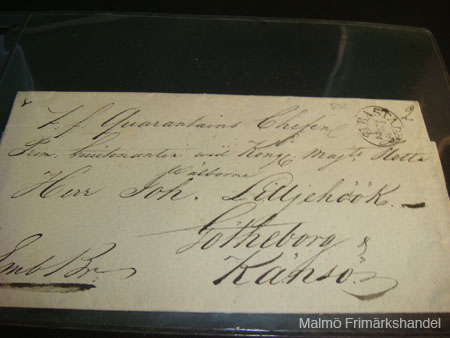 T.f. Quarantains Chefen
Prem. Lieutenanten vid Kongl. Majts. Flotta
Wälborne
Herr Joh. Lilljehöök.
Götheborg &
Känsö
Emb Br
Malmö Frimärkshandel